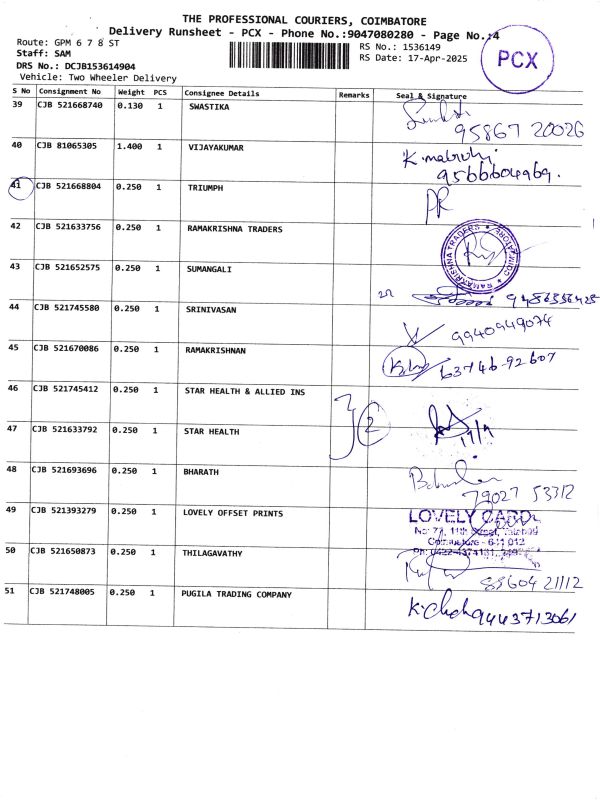 THE PROFESSIONAL COURIERS, COIMBATORE
Delivery Runsheet - PCX - Phone No.:9047080280 - Page No.:4
Route: GPM 6 7 8 ST
RS No.: 1536149
Staff: SAM
RS Date: 17-Apr-2025
DRS No.: DCJB153614904
Vehicle: Two Wheeler Delivery
PCX
S No Consignment No Weight PCS Consignee Details Remarks Seal & Signature
39 CJB 521668740 0.130 1 SWASTIKA
95867 20026
40 CJB 81065305 1.400 1 VIJAYAKUMAR
9566604969.
41 CJB 521668804 0.250 1 TRIUMPH
42 CJB 521633756 0.250 1 RAMAKRISHNA TRADERS
RAMAKRISHNA TRADERS
43 CJB 521652575 0.250 1 SUMANGALI
44 CJB 521745580 0.250 1 SRINIVASAN
9940949074
45 CJB 521670086 0.250 1 RAMAKRISHNAN
63746-92607
46 CJB 521745412 0.250 1 STAR HEALTH & ALLIED INS
2
47 CJB 521633792 0.250 1 STAR HEALTH
17/4
48 CJB 521693696 0.250 1 BHARATH
79027 53312
49 CJB 521393279 0.250 1 LOVELY OFFSET PRINTS
LOVELY CARD
50 CJB 521650873 0.250 1 THILAGAVATHY
88604 21112
51 CJB 521748005 0.250 1 PUGILA TRADING COMPANY
9443713061